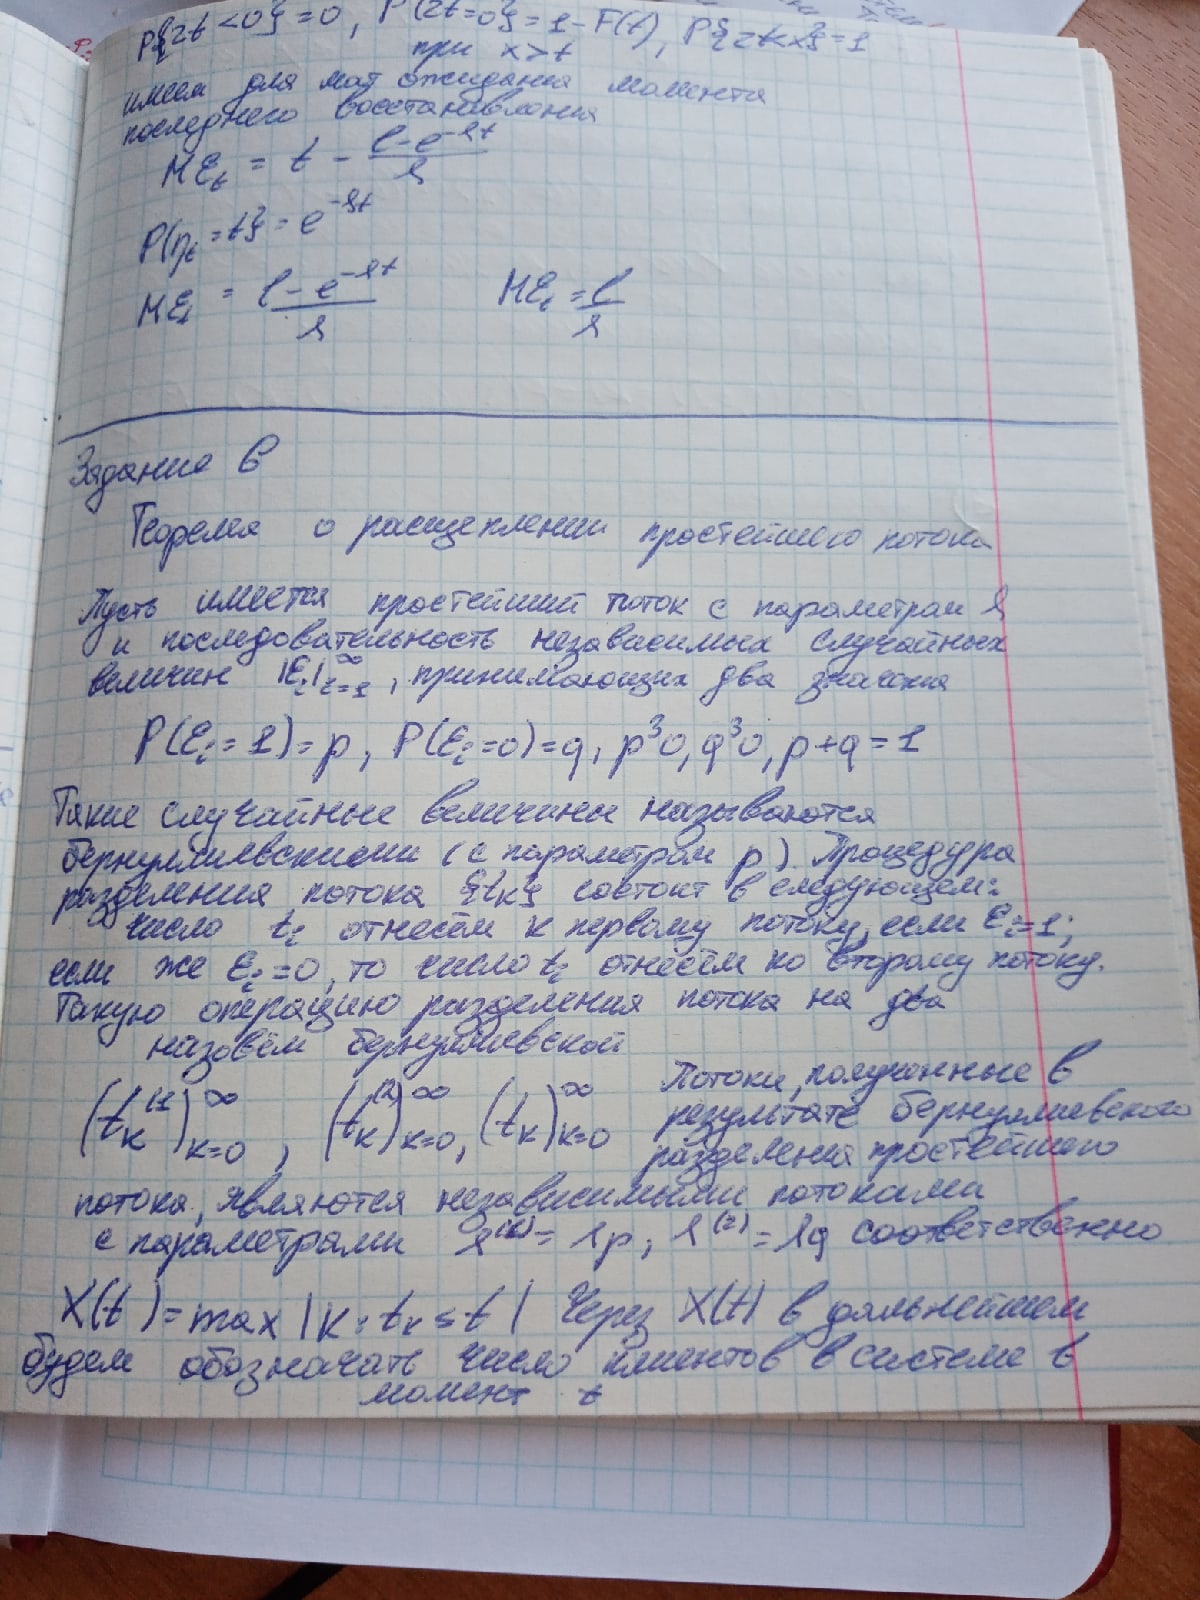 P{zt<0}=0, P(zt=0}=1-F(t), P{zt<x}=1
при x>t
имеем для мат ожидания момента
последнего восстановления
Mε_t = t - (l-e^{-λt})/λ
P(η_t=t}=e^{-λt}
Mε_t = (l-e^{-λt})/λ Mε_t = l/λ
Задание 6
Теорема о расщеплении простейшего потока
Пусть имеется простейший поток с параметрам λ
и последовательность независимых случайных
величин |ε_i|_{i=1}^∞, принимающих два значения
P(ε_i=1)=p, P(ε_i=0)=q, p³0, q³0, p+q=1
Такие случайные величины называются
бернуллиевскими (с параметрам p). Процедура
разделения потока {t_k} состоит в следующем:
число t_i отнесём к первому потоку, если ε_i=1;
если же ε_i=0, то число t_i отнесём ко второму потоку.
Такую операцию разделения потока на два
назовём бернуллиевской
(t_k^{(1})_{k=0}^∞, (t_k^{(2)})_{k=0}^∞, (t_k)_{k=0}^∞ Потоки, полученные в
результате бернуллиевского
разделения простейшего
потока, являются независимыми потоками
с параметрами λ^{(1)}=λp, λ^{(2)}=λq соответственно
X(t)=max|k:t_k≤t| Через X(t) в дальнейшем
будем обозначать число клиентов в системе в
момент t